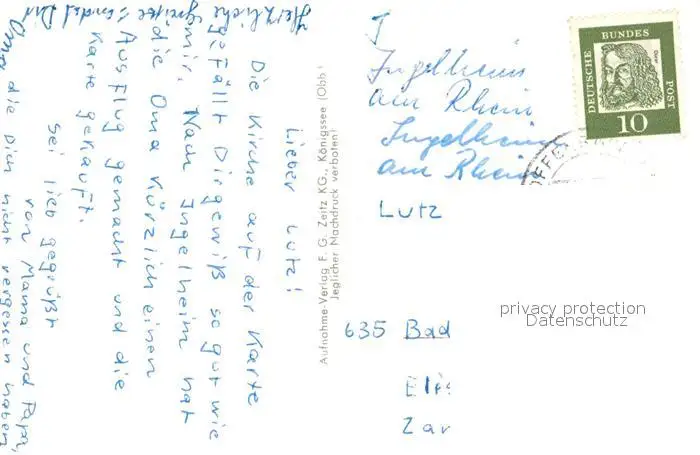 Lieber Lutz!
Die Kirche auf der Karte
gefällt Dir gewiß so gut wie
mir. Nach Ingelheim hat
die Oma kürzlich einen
Ausflug gemacht und die
Karte gekauft.
Sei lieb gegrüßt
von Mama und Papa,
die Dich nicht vergessen haben.
Herzliche
Grüße sendet Dir
Oma
Aufnahme-Verlag F. G. Zeitz KG., Königssee (Obb.)
Jeglicher Nachdruck verboten!
Ingelheim
am Rhein
Ingelheim
am Rhein
Lutz
635 Bad
Zar
DEUTSCHE BUNDESPOST
10
privacy protection
Datenschutz